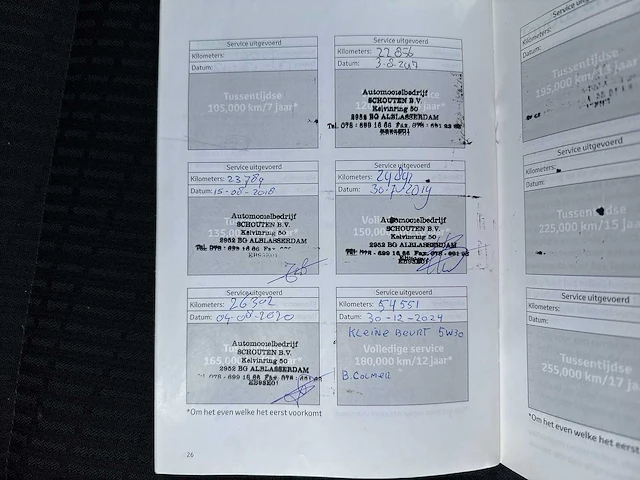 Service uitgevoerd
Kilometers:
Datum:
Tussentijdse
105,000 km/7 jaar*
Service uitgevoerd
Kilometers: 22856
Datum: 3-8-2017
Automobielbedrijf
SCHOUTEN B.V.
Kelvinring 50
2952 BG ALBLASSERDAM
Tel. 078 - 699 16 66 Fax. 078 - 691 93
Service uitgevoerd
Kilometers: 23789
Datum: 15-08-2018
135,0
Automobielbedrijf
SCHOUTEN B.V.
Kelvinring 50
2952 BG ALBLASSERDAM
Service uitgevoerd
Kilometers:
Datum: 30-7-2019
Vol
150,00
Automobielbedrijf
SCHOUTEN B.V.
Kelvinring 50
2952 BG ALBLASSERDAM
Service uitgevoerd
Kilometers: 26302
Datum: 04-08-2020
165,0
Automobielbedrijf
SCHOUTEN B.V.
Kelvinring 50
2952 BG ALBLASSERDAM
Service uitgevoerd
Kilometers: 54551
Datum: 30-12-2024
KLEINE BEURT 5W30
Volledige service
180,000 km/12 jaar*
B. Colmer
*Om het even welke het eerst voorkomt
26
Service uitgevoerd
Kilometers:
Datum:
Tussentijdse
195,000 km
Service uitgevoerd
Kilometers:
Datum:
Tussen
225,000 km/15 jaar
Service uitgevoerd
Kilometers:
Datum:
Tussentijdse
255,000 km/17 j
*Om het even welke het eerst